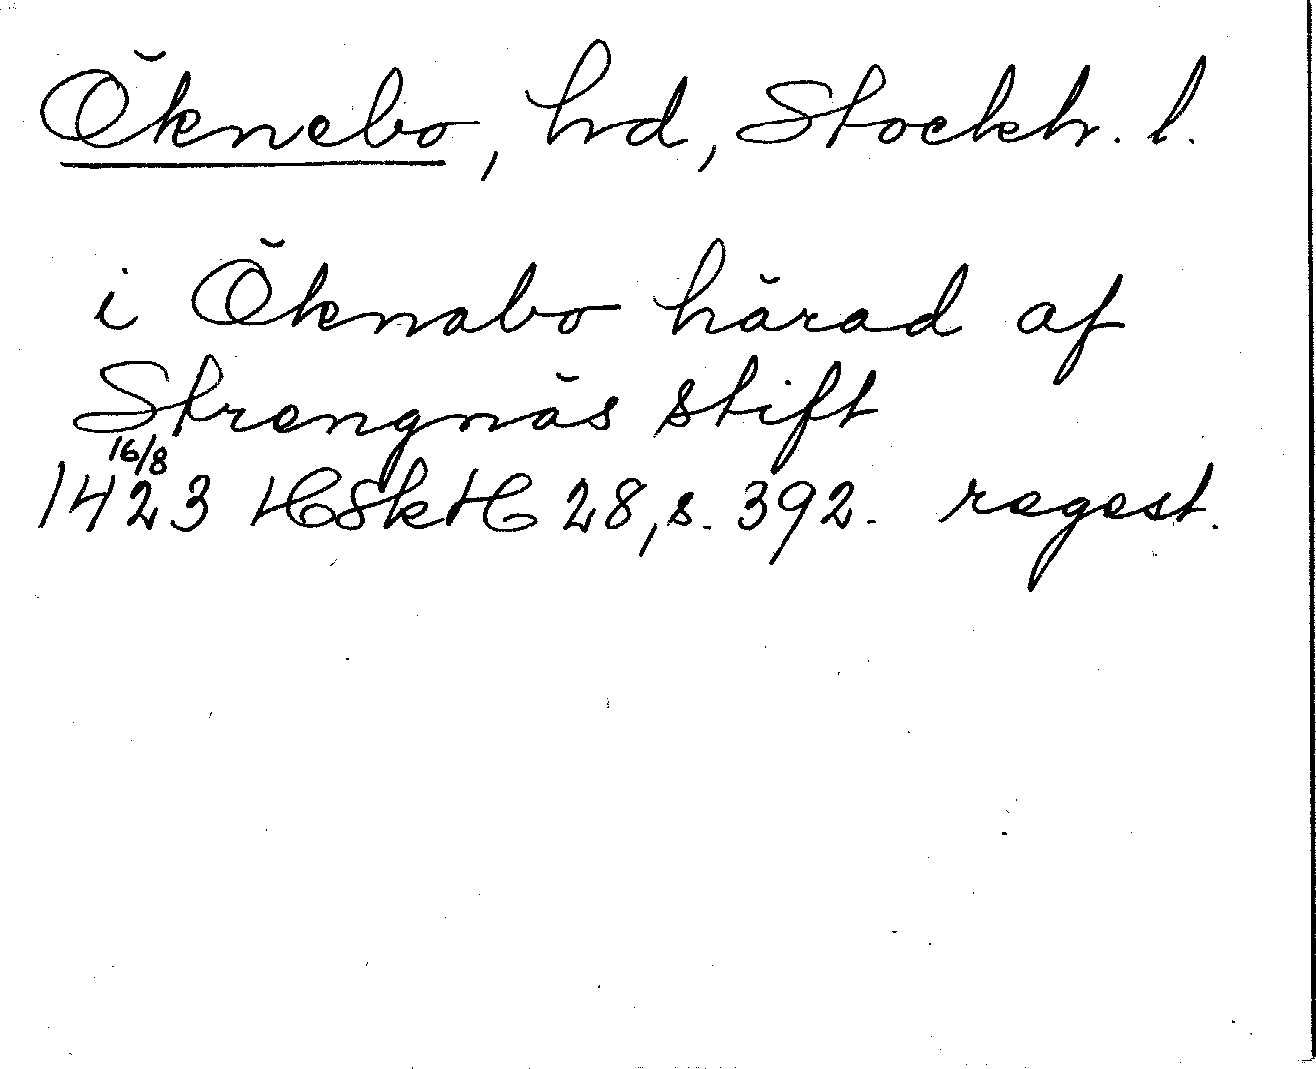 Öknebo, hd, Stockh. l.
i Öknabo härad af
Strengnäs stift
16/8
1423 HSkH 28, s. 392. regest.